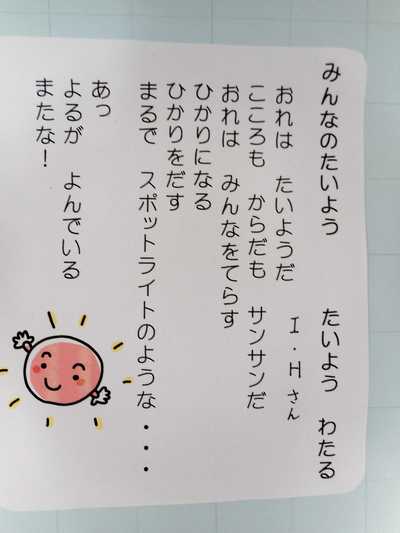 みんなのたいよう　たいよう　わたる
I・Hさん
おれは　たいようだ
こころも　からだも　サンサンだ
おれは　みんなをてらす
ひかりになる
ひかりをだす
まるで　スポットライトのような・・・
あっ
よるが　よんでいる
またな！